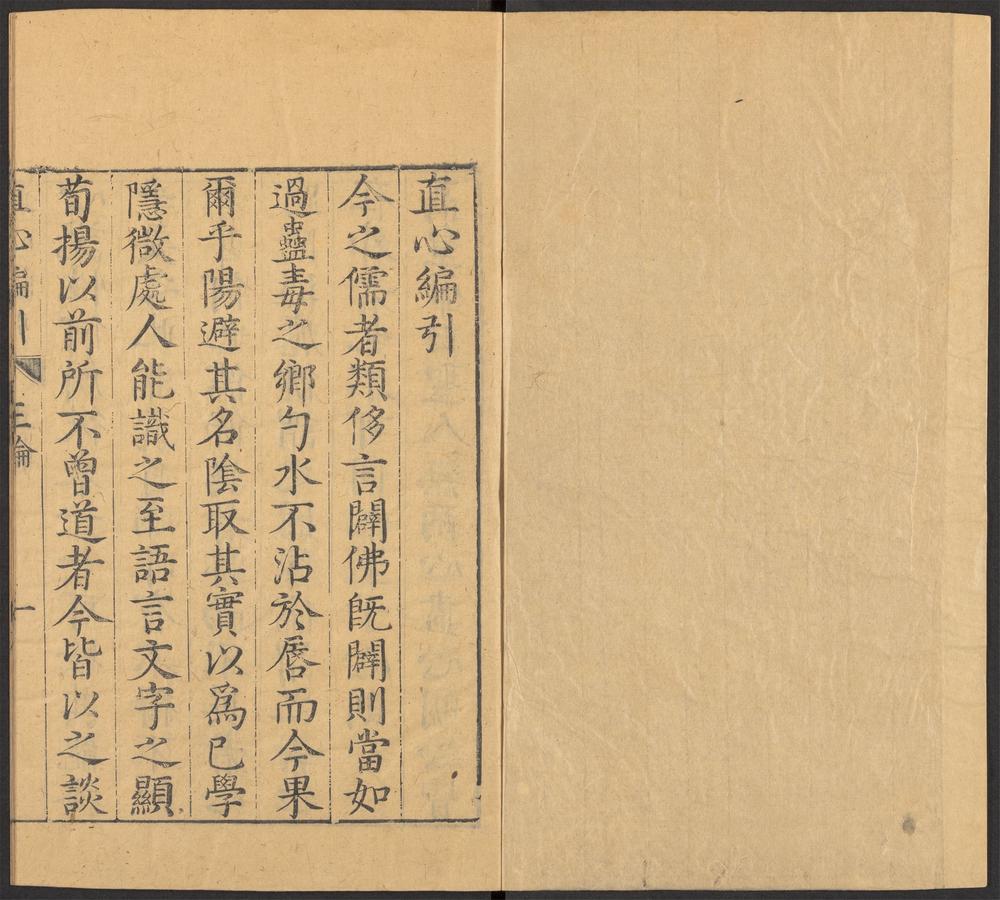 直心編引
今之儒者類侈言闢佛既闢則當如
過蠱毒之鄉勺水不沾於唇而今果
爾乎陽避其名陰取其實以爲己學
隱微處人能識之至語言文字之顯
荀揚以前所不曾道者今皆以之談
直心編引